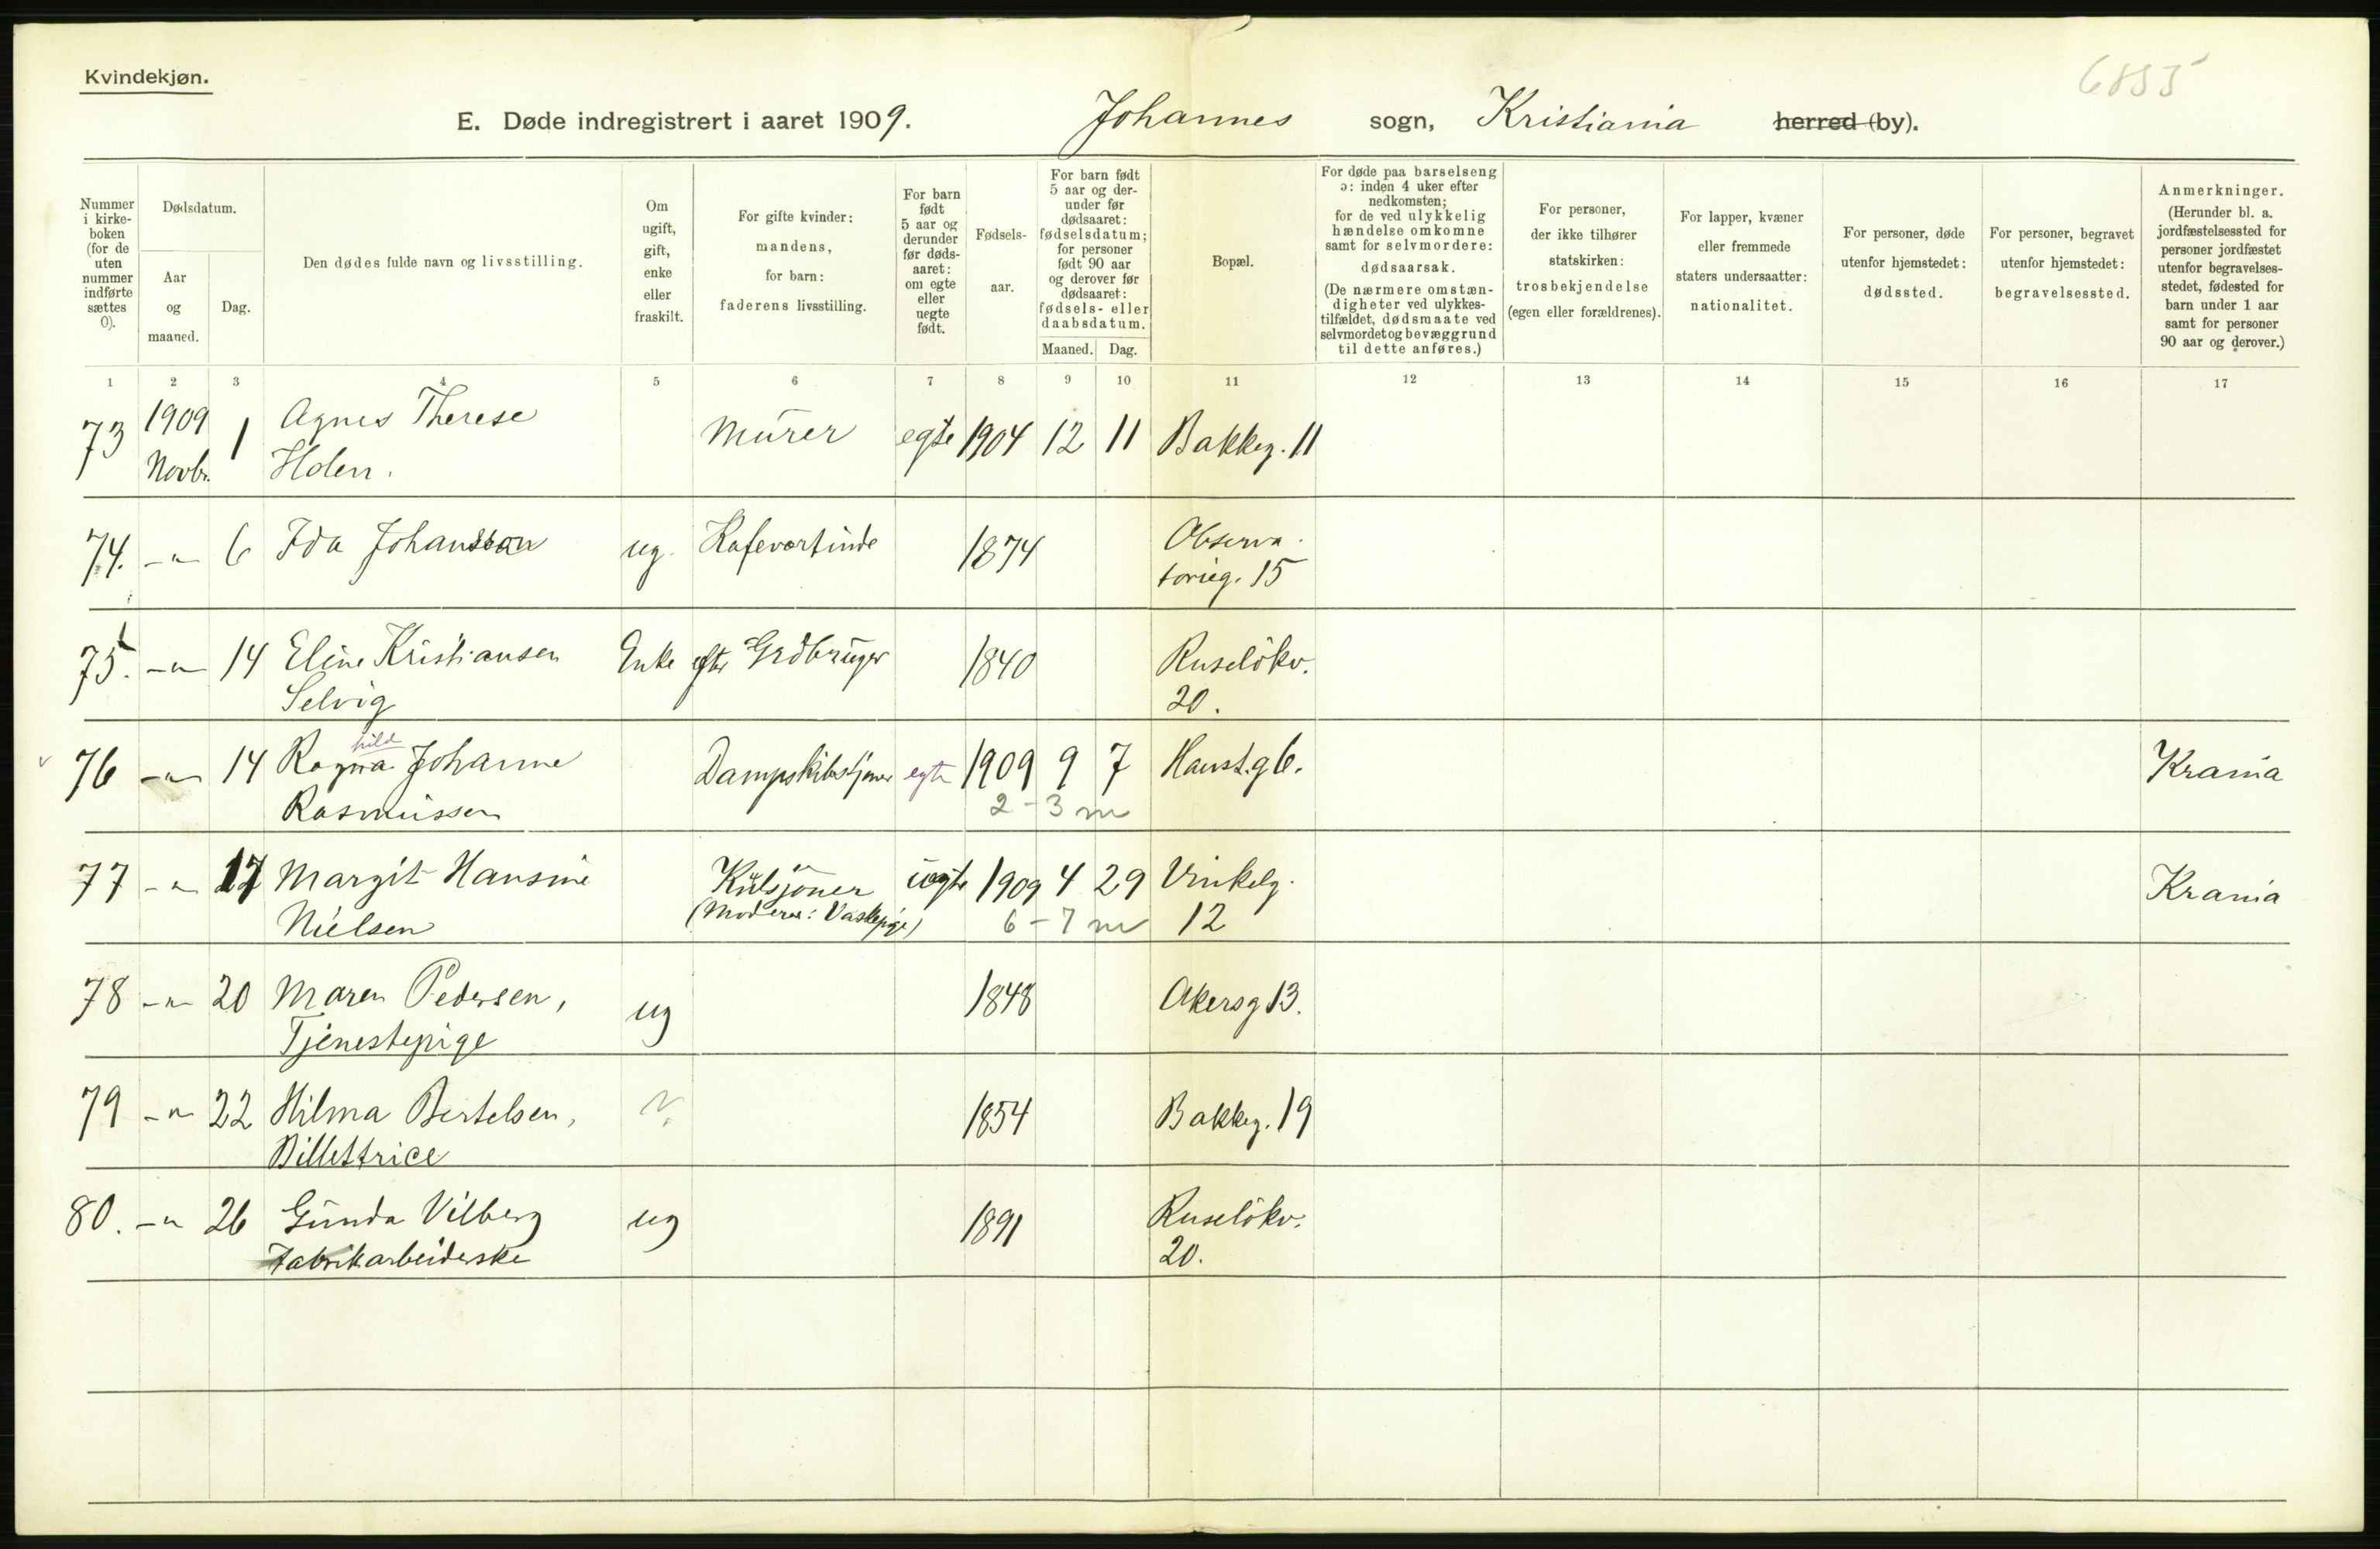 Kvindekjøn.
6855
E. Døde indregistrert i aaret 1909. Johannes sogn, Kristiania herred (by).
Nummer i kirkeboken (for de uten nummer indførte sættes 0).
Dødsdatum.
Aar og maaned.
Dag.
Den dødes fulde navn og livsstilling.
Om ugift, gift, enke eller fraskilt.
For gifte kvinder: mandens, for barn: faderens livsstilling.
For barn født 5 aar og derunder før dødsaaret: om egte eller uegte født.
Fødselsaar.
For barn født 5 aar og derunder før dødsaaret: fødselsdatum; for personer født 90 aar og derover før dødsaaret: fødsels- eller daabsdatum.
Maaned. Dag.
Bopæl.
For døde paa barselseng ɔ: inden 4 uker efter nedkomsten; for de ved ulykkelig hændelse omkomne samt for selvmordere: dødsaarsak. (De nærmere omstændigheter ved ulykkestilfældet, dødsmaate ved selvmordet og bevæggrund til dette anføres.)
For personer, der ikke tilhører statskirken: trosbekjendelse (egen eller forældrenes).
For lapper, kvæner eller fremmede staters undersaatter: nationalitet.
For personer, døde utenfor hjemstedet: dødssted.
For personer, begravet utenfor hjemstedet: begravelsessted.
Anmerkninger. (Herunder bl. a. jordfæstelsessted for personer jordfæstet utenfor begravelsesstedet, fødested for barn under 1 aar samt for personer 90 aar og derover.)
1 2 3 4 5 6 7 8 9 10 11 12 13 14 15 16 17
73 1909 Novbr. 1 Agnes Therese Murer egte 1904 12 11 Bakkeg. 11
Holen.
74. -"- 6 Ida Johansson ug. Kafevertinde 1874 Observa-
torieg. 15
75. -"- 14 Eline Kristiansen Enke efter Grdbruger 1840 Ruseløkv.
Selvig 20.
hild
76 -"- 14 Ragna Johanne Dampskibstjener egte 1909 9 7 Haust.g 6. Krania
Rasmussen 2-3 m
77 -"- 17 Margit Hansine Kulsjouer uegte 1909 4 29 Vinkelg. Krania
Nielsen (Moderen: Vaskepige) 6-7 m 12
78 -"- 20 Maren Pedersen, ug 1848 Akersg 13.
Tjenestepige
79 -"- 22 Hilma Bertelsen, ? 1854 Bakkeg. 19
Billettrice
80. -"- 26 Gunda Vilberg ug 1891 Ruseløkv.
Fabrikarbeiderske 20.